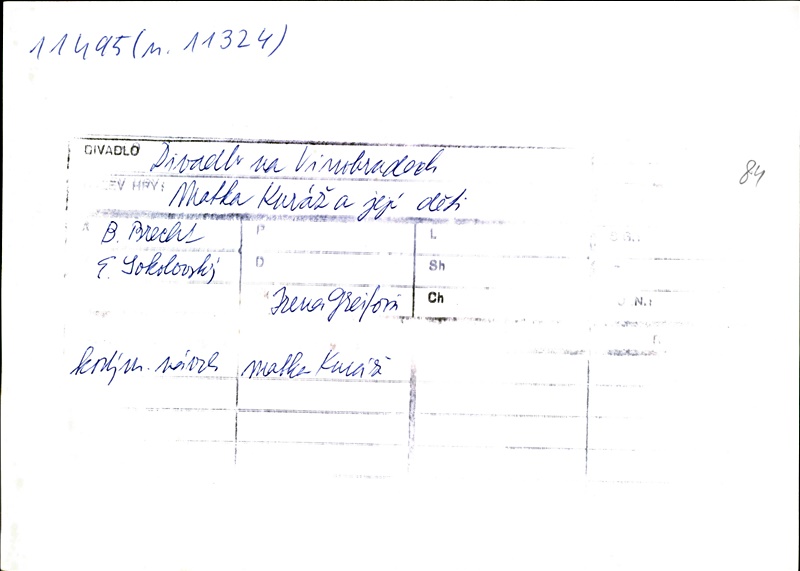 11495 (n. 11324)
84
DIVADLO Divadlo na Vinohradech
EV HRY: Matka Kuráž a její děti
B. Brecht P L
E. Sokolovský D Sh
Irena Greifová Ch N.:
kostým. návrh Matka Kuráž